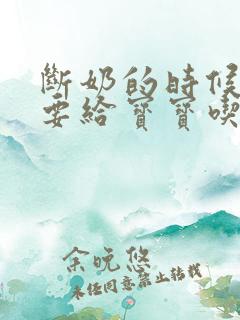 斷奶的時候
要給寶寶喫
余晚悠
未經同意禁止轉載